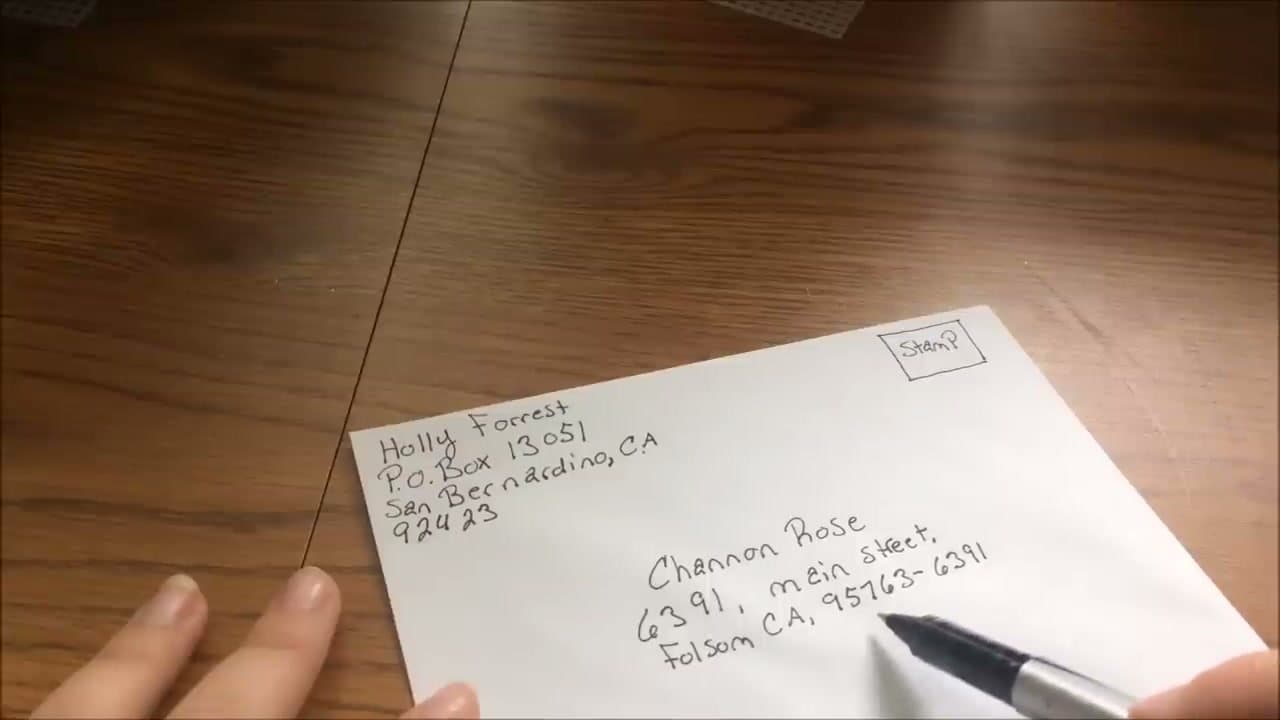 Holly Forrest
P.O. Box 13051
San Bernardino, CA
92423
Stamp
Channon Rose
6391, main street,
Folsom CA, 95763-6391